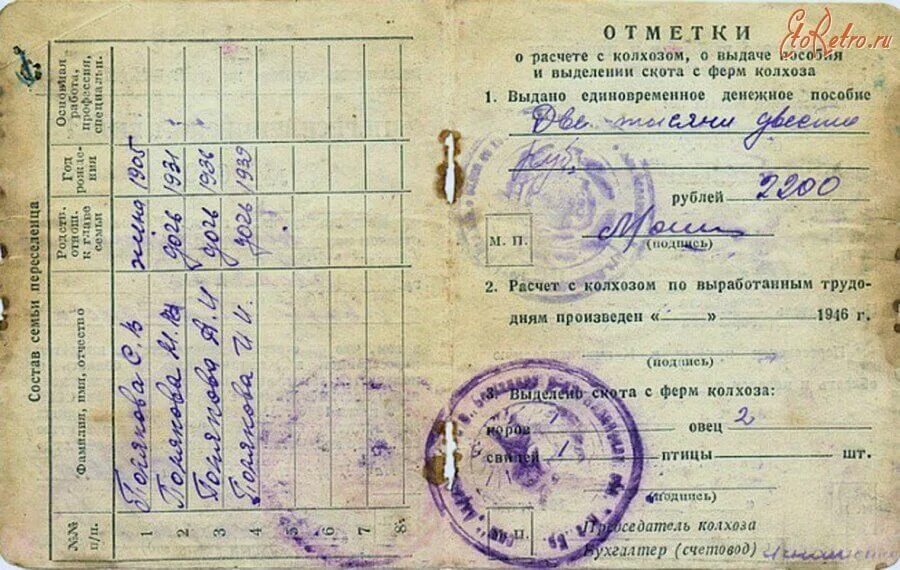 Состав семьи переселенца
№№ п/п.
Фамилия, имя, отчество
Родств. отнош. к главе семьи
Год рождения
Основная работа, профессия, специальн.
1 Полякова С. В жена 1905
2 Полякова М. дочь 1931
3 Полякова А. И дочь 1936
4 Полякова И. И. дочь 1939
5
6
7
8
EtoRetro.ru
ОТМЕТКИ
о расчете с колхозом, о выдаче пособия
и выделении скота с ферм колхоза
1. Выдано единовременное денежное пособие
Две тысячи двести
руб.
рублей 2200
М. П.
(подпись)
2. Расчет с колхозом по выработанным трудо-
дням произведен « » 1946 г.
(подпись)
3. Выделено скота с ферм колхоза:
коров 1 овец 2
свиней 1 птицы шт.
(подпись)
М. П.
Председатель колхоза
Бухгалтер (счетовод)